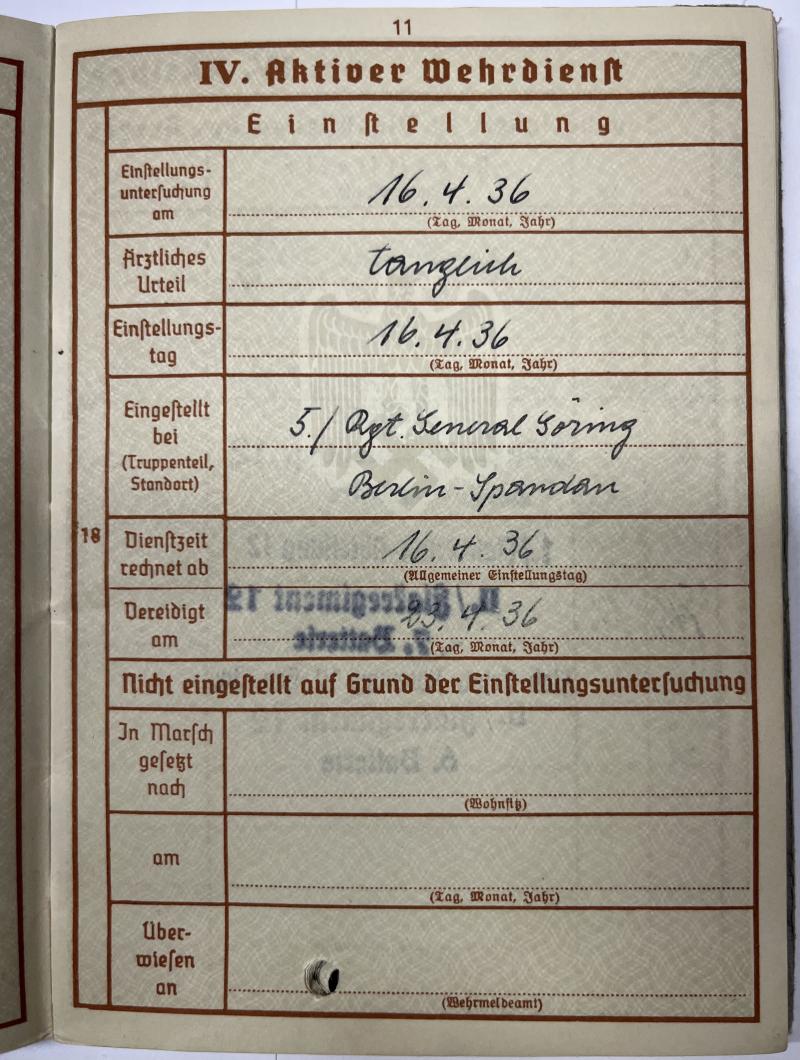 11
IV. Aktiver Wehrdienst
Einstellung
Einstellungs-
untersuchung
am
16. 4. 36
(Tag, Monat, Jahr)
Ärztliches
Urteil
tauglich
Einstellungs-
tag
16. 4. 36
(Tag, Monat, Jahr)
Eingestellt
bei
(Truppenteil,
Standort)
5./ Rgt. General Göring
Berlin-Spandau
18
Dienstzeit
rechnet ab
16. 4. 36
(Allgemeiner Einstellungstag)
Vereidigt
am
23. 4. 36
(Tag, Monat, Jahr)
Nicht eingestellt auf Grund der Einstellungsuntersuchung
In Marsch
gesetzt
nach
(Wohnsitz)
am
(Tag, Monat, Jahr)
Über-
wiesen
an
(Wehrmeldeamt)